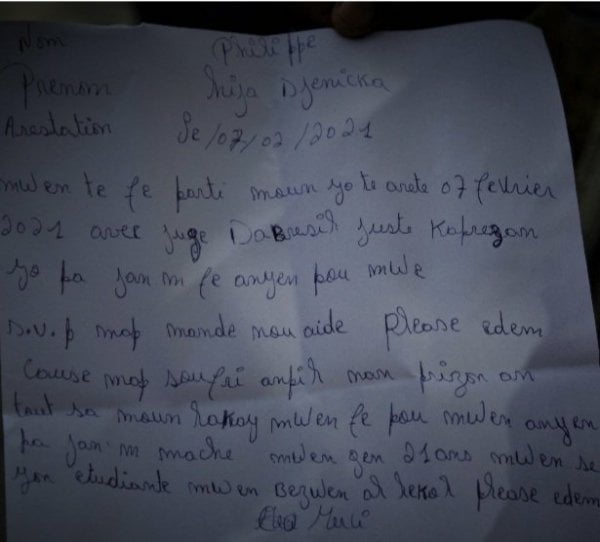 Nom Philippe
Prenom Djenicka
Arestation Le/07/02/2021
mwen te fe parti moun yo te arete 07 fevrier
2021 avec juge Dabresil juste Kaprezan
yo pa jan m fe anyen pou mwe
s.v.p map mande nou aide please edem
Cause map soufri anpil nan prizon an
tout sa moun lakay mwen fe pou mwen anyen
pa jan m mache mwen gen 21ans mwen se
yon etudiante mwen Bezwen al lekol please edem